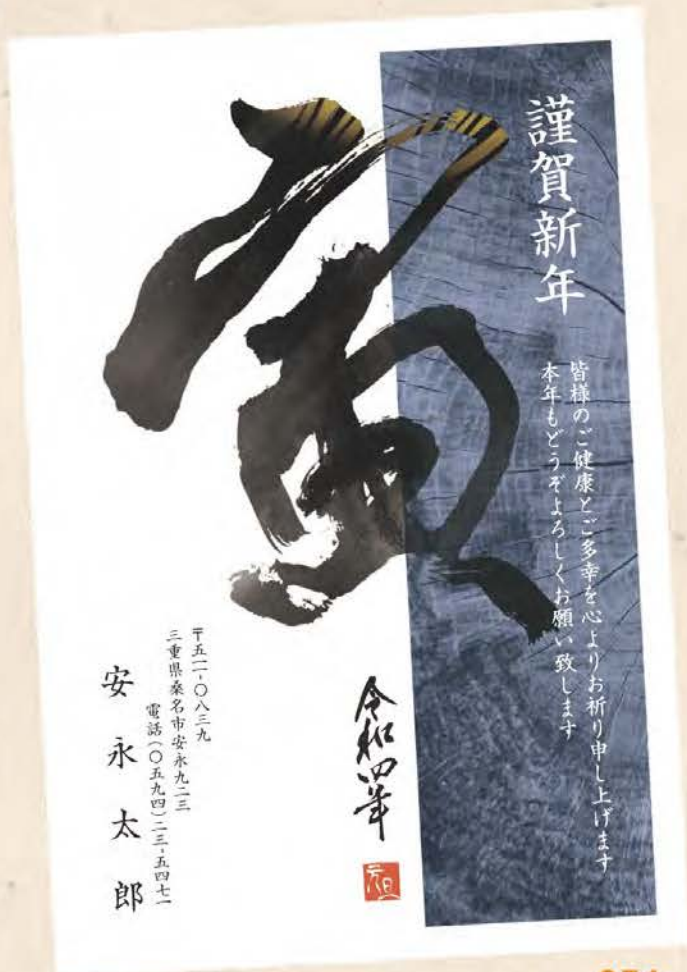 謹賀新年
皆様のご健康とご多幸を心よりお祈り申し上げます
本年もどうぞよろしくお願い致します
寅
令和四年
元旦
〒五一一-〇八三九
三重県桑名市安永九二三
電話(〇五九四)二三-五四七一
安永太郎